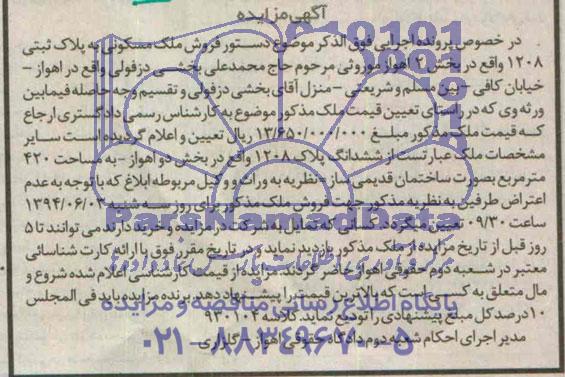 آگهی مزایده
در خصوص پرونده اجرایی فوق الذکر موضوع دستور فروش ملک مسکونی به پلاک ثبتی
۱۲۰۸ واقع در بخش ۲ اهواز موروثی مرحوم حاج محمدعلی بخشی دزفولی واقع در اهواز -
خیابان کافی - بین مسلم و شریعتی - منزل آقای بخشی دزفولی و تقسیم وجه حاصله فیمابین
ورثه وی که در راستای تعیین قیمت ملک مذکور موضوع به کارشناس رسمی دادگستری ارجاع
که قیمت ملک مذکور مبلغ ۱۳/۶۵۰/۰۰۰/۰۰۰ ریال تعیین و اعلام گردیده است سایر
مشخصات ملک عبارتست از ششدانگ پلاک ۱۲۰۸ واقع در بخش دو اهواز - به مساحت ۴۲۰
مترمربع بصورت ساختمان قدیمی ساز - نظریه به وراث و وکیل مربوطه ابلاغ که با توجه به عدم
اعتراض طرفین به نظریه مذکور جهت فروش ملک مذکور برای روز سه شنبه ۱۳۹۴/۰۶/۰۳
ساعت ۰۹/۳۰ تعیین میگردد کسانی که تمایل به شرکت در مزایده و خرید دارند می توانند تا ۵
روز قبل از تاریخ مزایده از ملک مذکور بازدید نمایند و در تاریخ مقرر فوق با ارائه کارت شناسائی
معتبر در شعبه دوم حقوقی اهواز حاضر گردند مزایده از قیمت کارشناسی اعلام شده شروع و
مال متعلق به کسی است که بالاترین قیمت را پیشنهاد دهد برنده مزایده باید فی المجلس
۱۰ درصد کل مبلغ پیشنهادی را تودیع نماید کلاسه ۹۳۰۱۰۴
مدیر اجرای احکام شعبه دوم دادگاه حقوقی اهواز - گلزاری
ParsNamadData
پایگاه اطلاع رسانی مناقصه و مزایده
۰۲۱-۸۸۳۴۹۶۷۰-۵